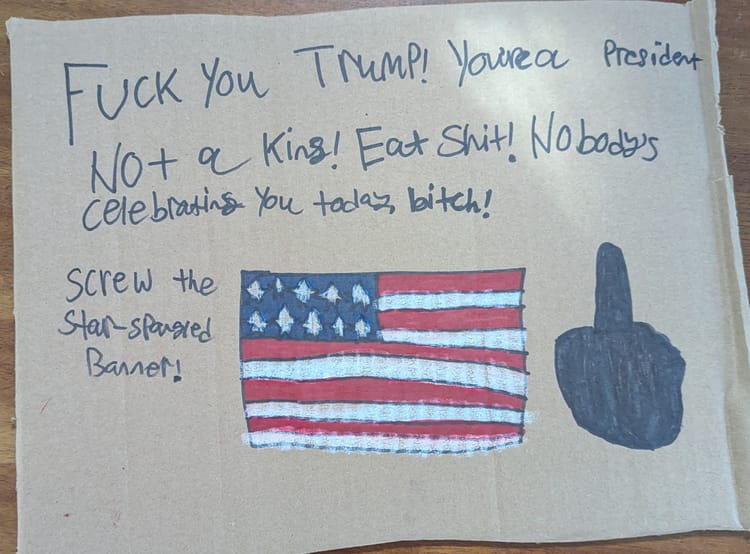 FUCK YOU TRUMP! You're a President
Not a King! Eat Shit! Nobody's
celebrating You today, bitch!
Screw the
Star-Spangled
Banner!